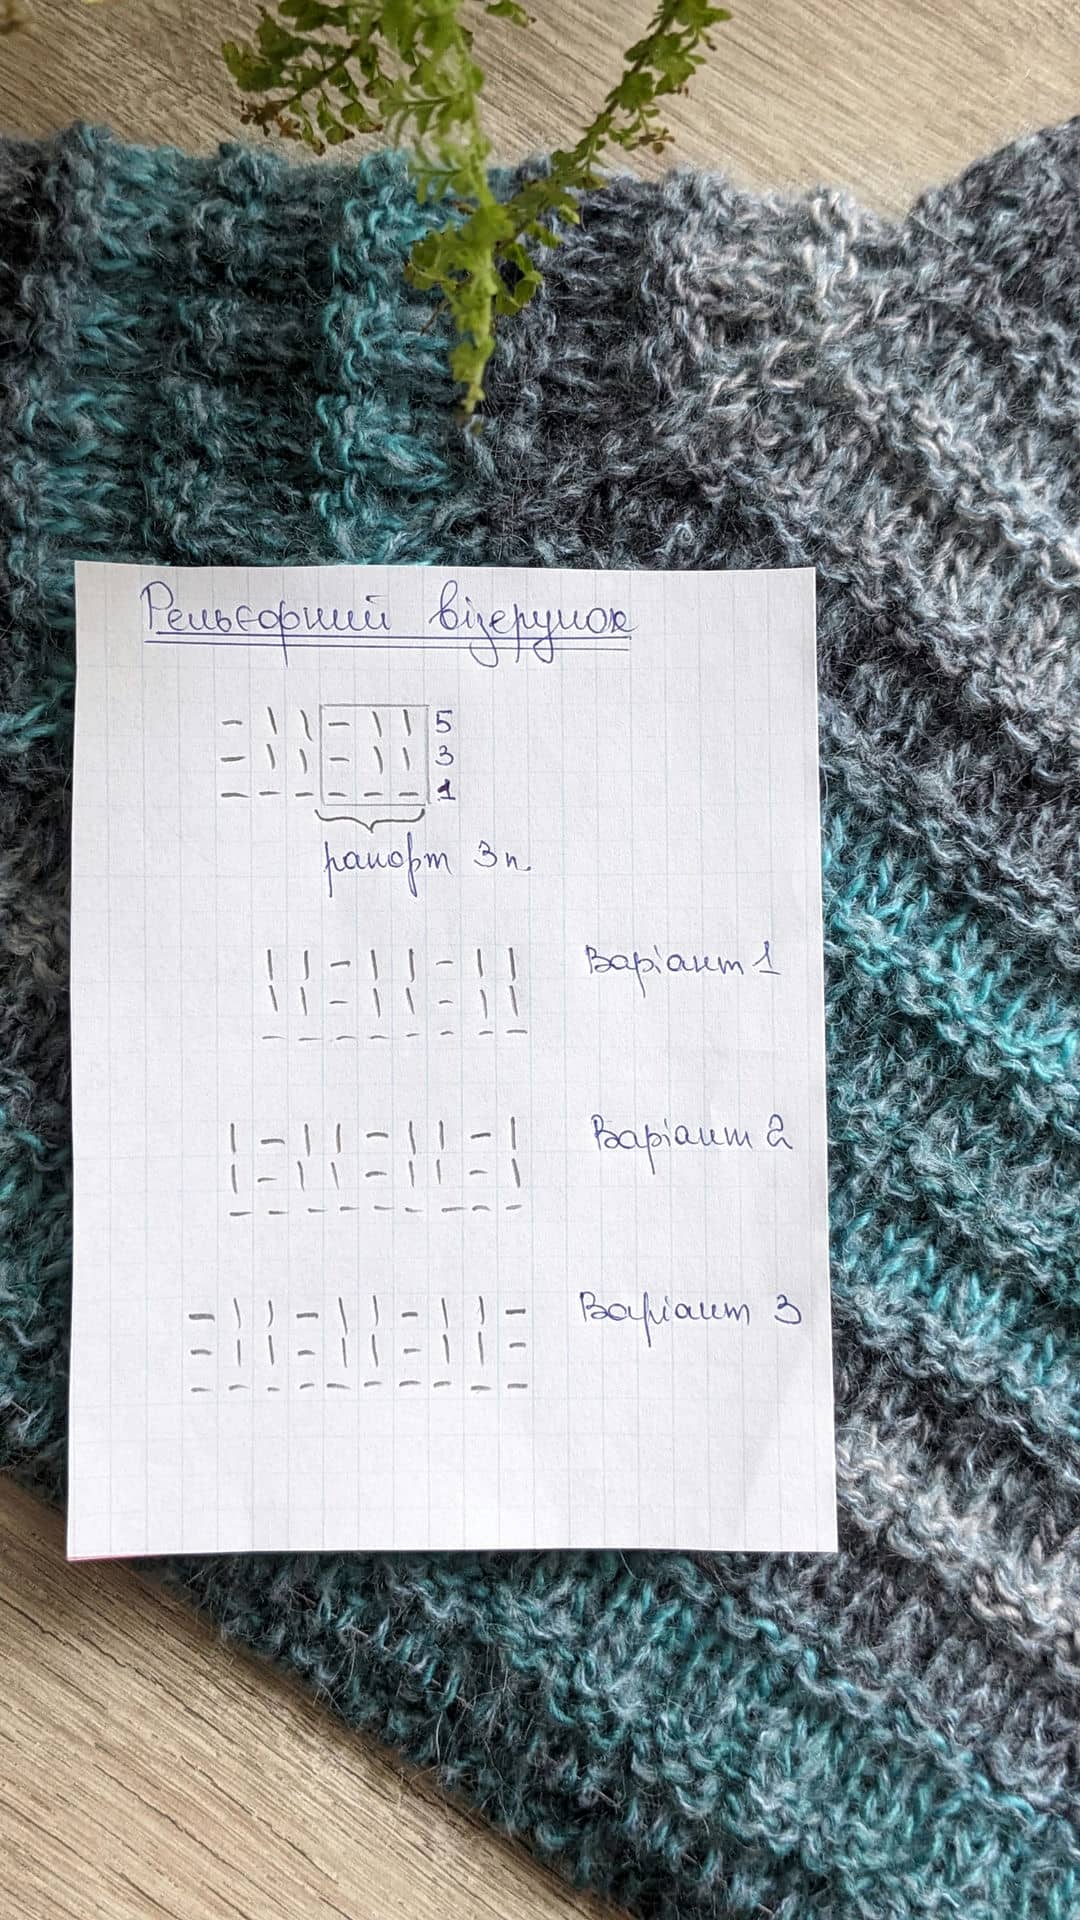 Рельєфний візерунок
- | | - | | 5
- | | - | | 3
- - - - - - 1
рапорт 3п.
| | - | | - | | Варіант 1
| | - | | - | |
- - - - - - - -
| - | | - | | - | Варіант 2
| - | | - | | - |
- - - - - - - - -
- | | - | | - | | - Варіант 3
- | | - | | - | | -
- - - - - - - - - -